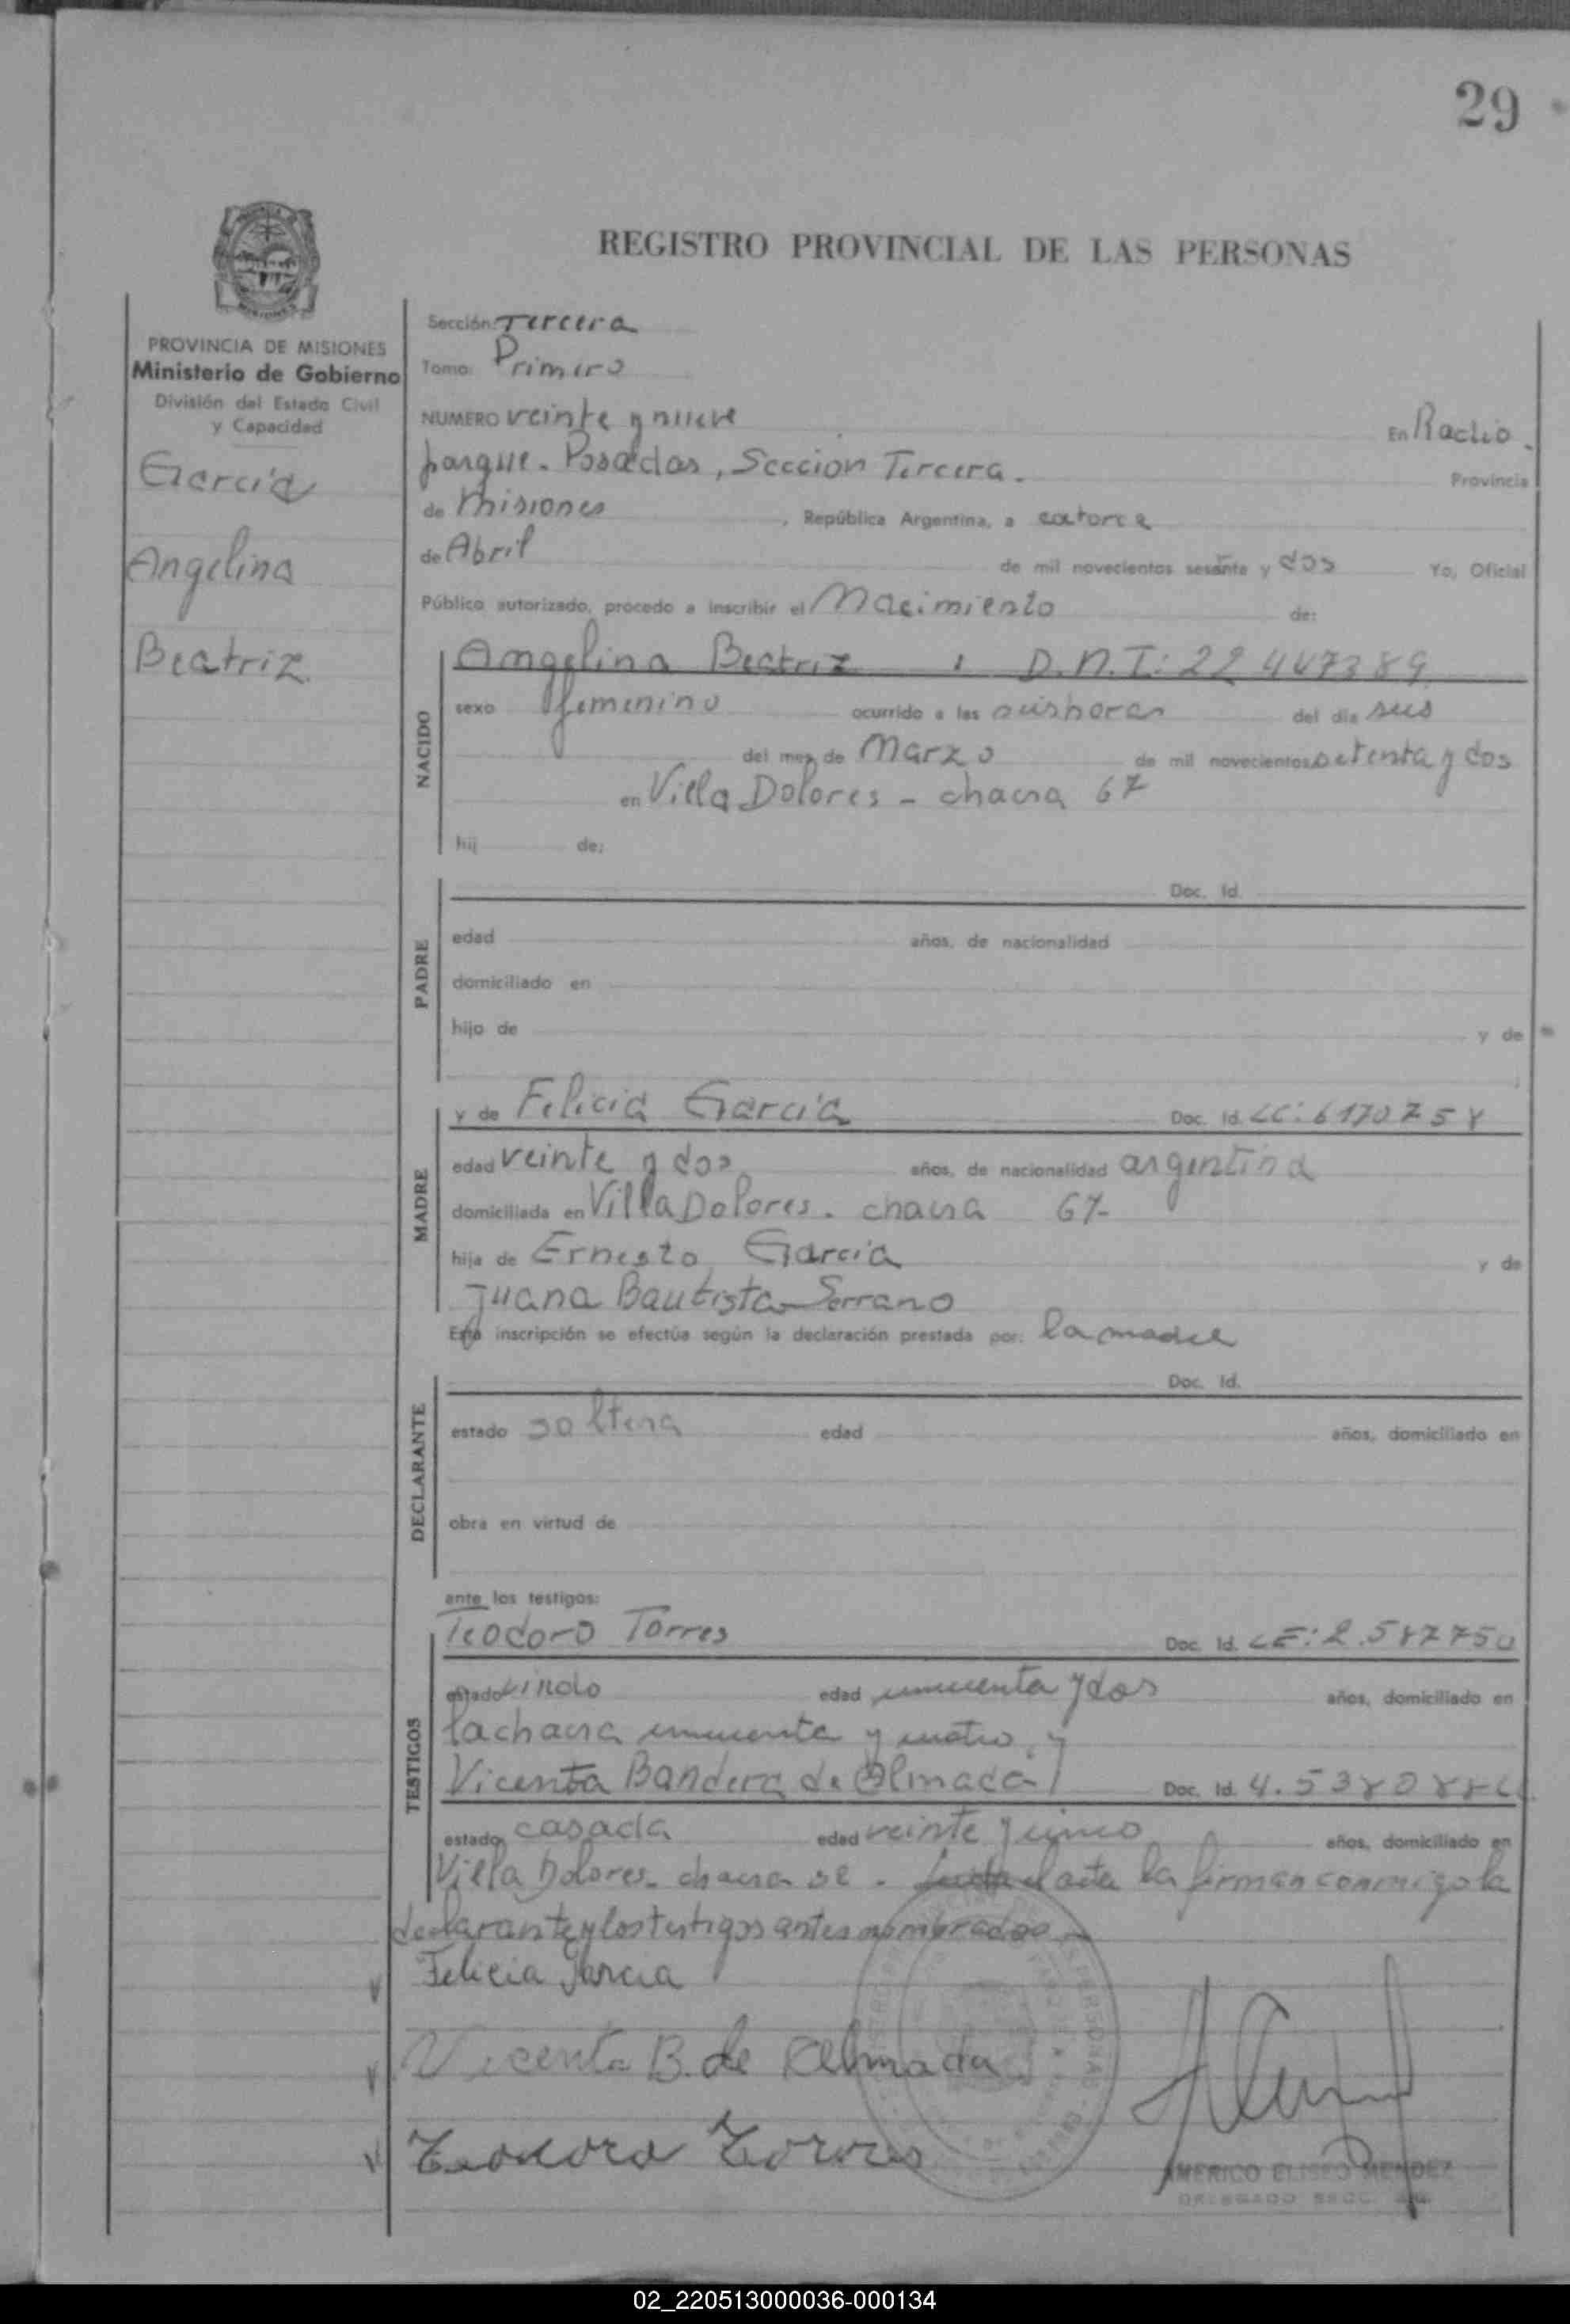 29
REGISTRO PROVINCIAL DE LAS PERSONAS
PROVINCIA DE MISIONES
Ministerio de Gobierno
División del Estado Civil
y Capacidad
Garcia
Angelina
Beatriz
Sección: Tercera
Tomo: Primero
NUMERO veinte y nueve En Radio.
parque. Posadas, Seccion Tercera. Provincia
de Misiones, República Argentina, a catorce
de Abril de mil novecientos sesenta y dos Yo, Oficial
Público autorizado, procedo a inscribir el Nacimiento de:
NACIDO
Angelina Beatriz : D.N.I: 22 447389
sexo femenino ocurrido a las seis horas del día seis
del mes de Marzo de mil novecientos setenta y dos
en Villa Dolores - chacra 67
hij de:
PADRE
Doc. Id.
edad años, de nacionalidad
domiciliado en
hijo de y de
MADRE
y de Felicia Garcia Doc. Id. LC: 6170758
edad veinte y dos años, de nacionalidad argentina
domiciliada en Villa Dolores. chacra 67-
hija de Ernesto Garcia y de
Juana Bautista Serrano
Esta inscripción se efectúa según la declaración prestada por: la madre
DECLARANTE
Doc. Id.
estado soltera edad años, domiciliado en
obra en virtud de
ante los testigos:
TESTIGOS
Teodoro Torres Doc. Id. LE: 2.587750
estado viudo edad cincuenta y dos años, domiciliado en
la chacra cincuenta y cuatro, y
Vicenta Bandera de Almada Doc. Id. 4.5380
estado casada edad veinte y cinco años, domiciliado en
Villa Dolores. chacra se. el acta la firman conmigo la
declarante y los testigos antes nombrados
Felicia Garcia
Vicenta B. de Almada
Teodoro Torres
AMERICO ELISEO MENDEZ
DELEGADO SECC.
02_220513000036-000134